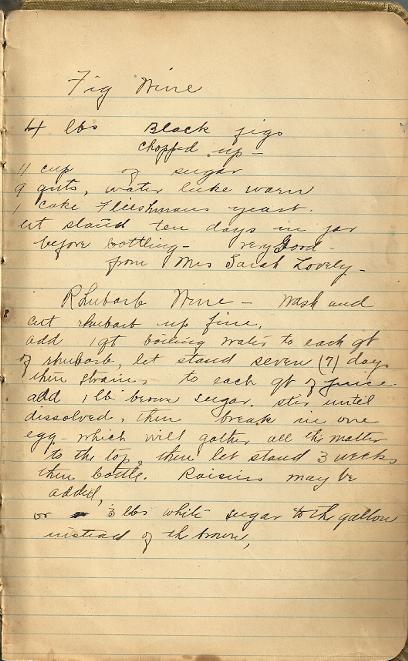 Fig Wine
4 lbs Black figs
chopped up -
11 cup of sugar
9 qnts, water luke warm
1 cake Flieshmans yeast.
let stand ten days in jar
before bottling - very Good -
from Mrs Sarah Lovely -
Rhubarb Wine - Wash and
cut rhubarb up fine,
add 1 qt boiling water to each qt
of rhubarb, let stand seven (7) days
then strain, to each qt of juice
add 1 lb brown sugar, stir until
dissolved, then break in one
egg which will gather all the matter
to the top, then let stand 3 weeks
then bottle. Raisins may be
added,
or 3 lbs white sugar to th gallon
instead of th brown,